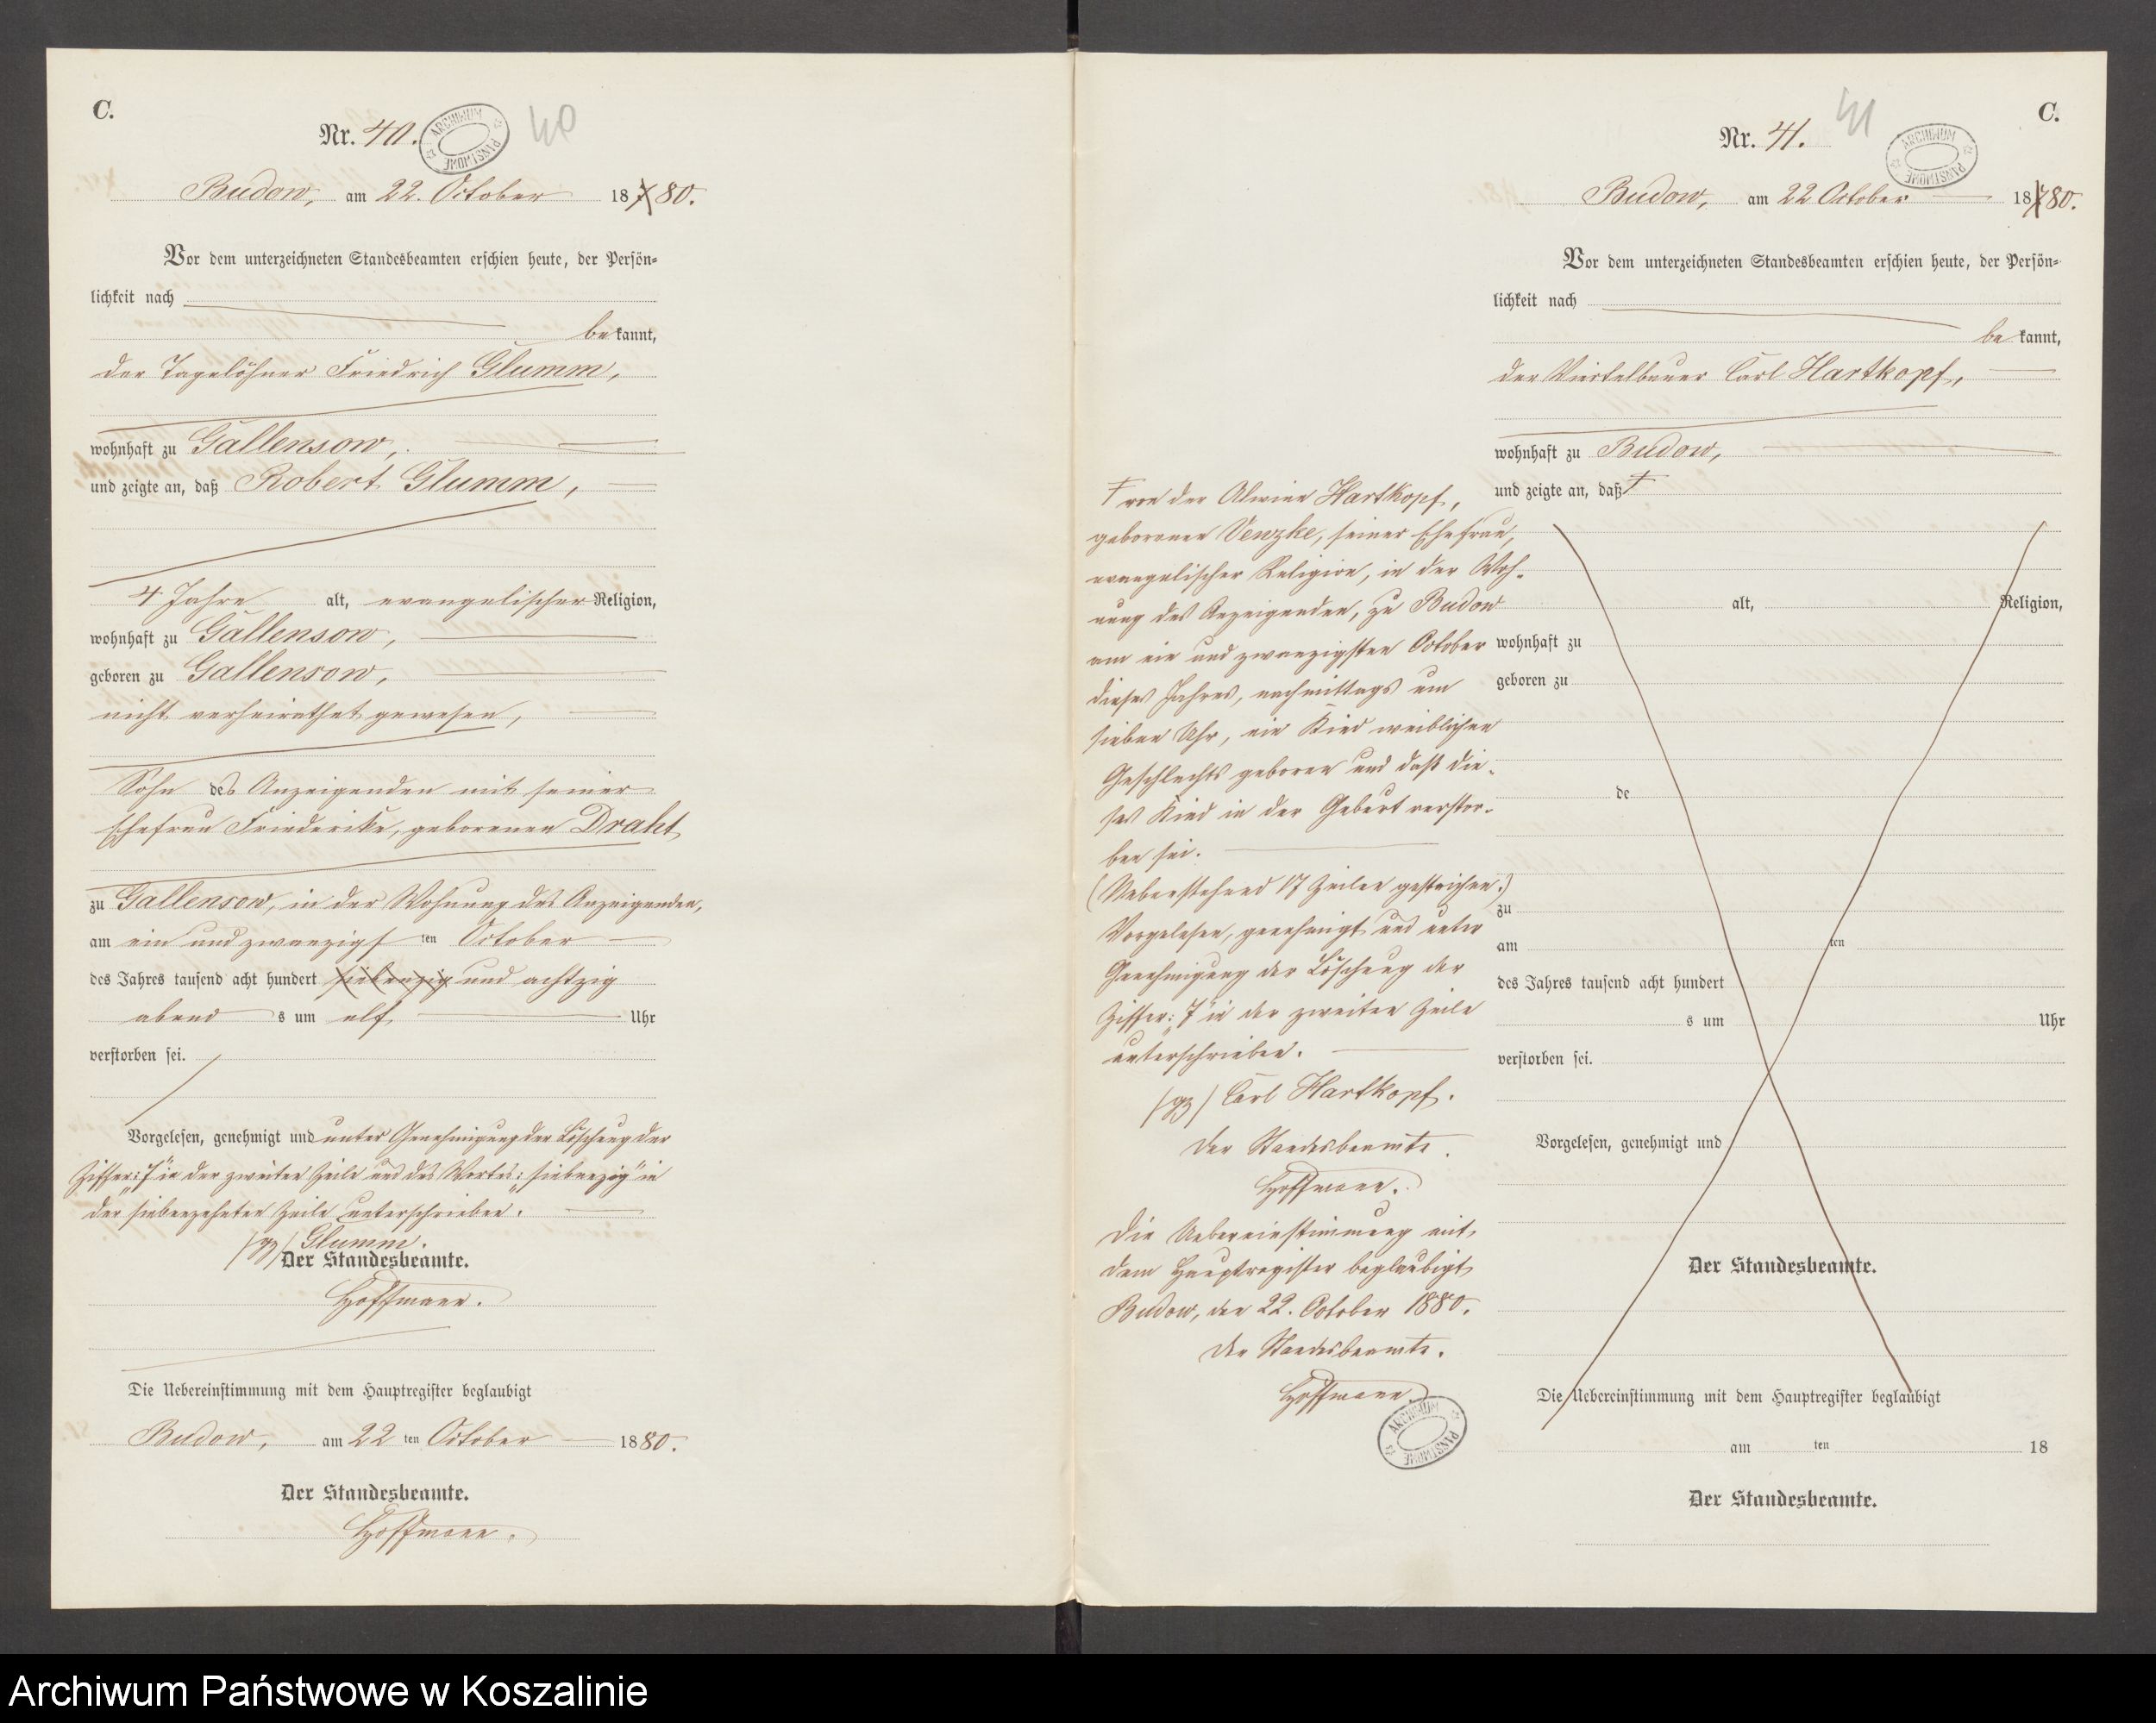 C.
Nr. 40.
40
ARCHIWUM PAŃSTWOWE
Budow, am 22. October 18780.
Vor dem unterzeichneten Standesbeamten erschien heute, der Persön-
lichkeit nach
bekannt,
der Tagelöhner Friedrich Glumm,
wohnhaft zu Gallensow,
und zeigte an, daß Robert Glumm,
4 Jahre alt, evangelischer Religion,
wohnhaft zu Gallensow,
geboren zu Gallensow,
nicht verheirathet gewesen,
Sohn des Anzeigenden mit seiner
Ehefrau Friederike, geborenen Draht
zu Gallensow, in der Wohnung des Anzeigenden,
am ein und zwanzigsten October
des Jahres tausend acht hundert siebenzig und achtzig
abends um elf Uhr
verstorben sei.
Vorgelesen, genehmigt und unter Genehmigung der Löschung der
Ziffer: „7“ in der zweiten Zeile und des Wortes: „siebenzig“ in
der siebenzehnten Zeile unterschrieben.
/gz/ Glumm.
Der Standesbeamte.
Hoffmann.
Die Uebereinstimmung mit dem Hauptregister beglaubigt
Budow, am 22ten October 1880.
Der Standesbeamte.
Hoffmann.
C.
41
Nr. 41.
ARCHIWUM PAŃSTWOWE
Budow, am 22 October 18780.
Vor dem unterzeichneten Standesbeamten erschien heute, der Persön-
lichkeit nach
bekannt,
der Viertelbauer Carl Hartkopf,
wohnhaft zu Budow,
und zeigte an, daß †
† von der Alwine Hartkopf,
geborenen Venzke, seiner Ehefrau,
evangelischer Religion, in der Woh-
nung des Anzeigenden, zu Budow
am ein und zwanzigsten October
dieses Jahres, nachmittags um
sieben Uhr, ein Kind weiblichen
Geschlechts geboren und daß die-
ses Kind in der Geburt verstor-
ben sei.
(Ueberstehend 17 Zeilen gestrichen.)
Vorgelesen, genehmigt und unter
Genehmigung der Löschung der
Ziffer: „7“ in der zweiten Zeile
unterschrieben.
/gz/ Carl Hartkopf.
Der Standesbeamte.
Hoffmann.
Die Uebereinstimmung mit
dem Hauptregister beglaubigt
Budow, den 22. October 1880.
Der Standesbeamte.
Hoffmann.
ARCHIWUM PAŃSTWOWE
alt, Religion,
wohnhaft zu
geboren zu
de
zu
am ten
des Jahres tausend acht hundert
s um Uhr
verstorben sei.
Vorgelesen, genehmigt und
Der Standesbeamte.
Die Uebereinstimmung mit dem Hauptregister beglaubigt
am ten 18
Der Standesbeamte.
Archiwum Państwowe w Koszalinie